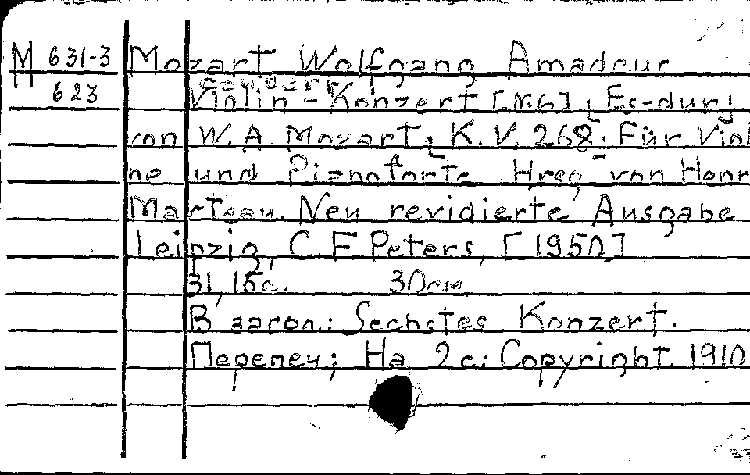 М 631-3 Mozart Wolfgang Amadeur
623 Violin-Konzert [№6] Es-dur
von W. A. Mozart; K. V. 268. Für Violi
ne und Pianoforte. Hrsg. von Henr
Marteau. Neu revidierte Ausgabe
Leipzig, C. F. Peters, [1950]
31, 15 с. 30 см
В загол.: Sechstes Konzert.
Перепеч.: На 2 с.: Copyright 1910